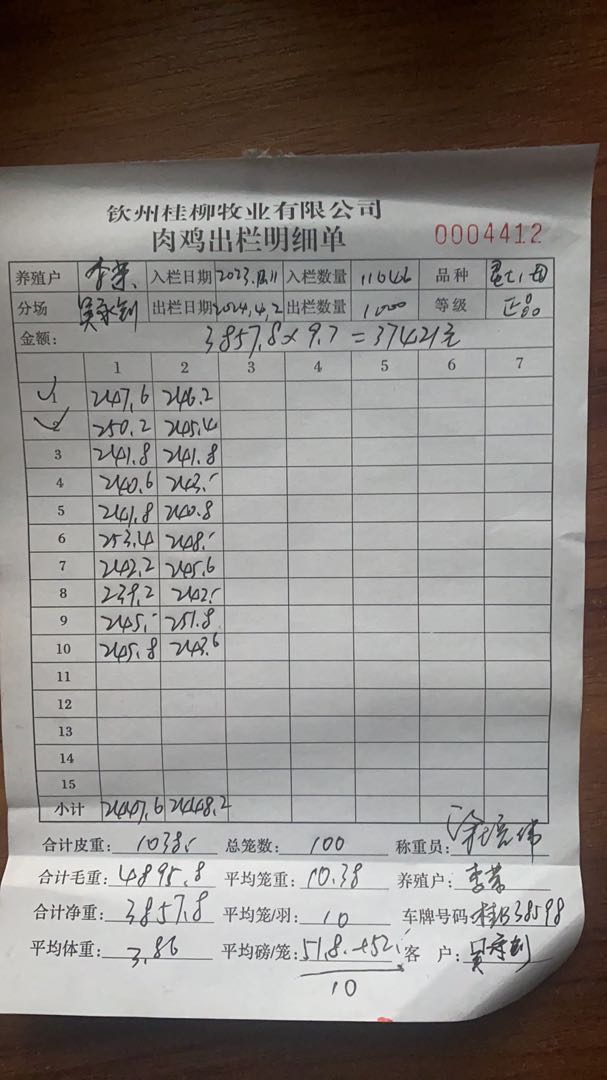 钦州桂柳牧业有限公司
肉鸡出栏明细单 0004412
养殖户 李荣 入栏日期 2023. 入栏数量 11046 品种
分场 吴永钊 出栏日期 2024.4.2 出栏数量 1000 等级 正品
金额: 3857.8×9.7=37421元
1 2 3 4 5 6 7
1 247.6 246.2
2 250.2 245.4
3 241.8 241.8
4 240.6 243.-
5 241.8 240.8
6 253.4 248.-
7 242.2 245.6
8 239.2 242.-
9 245.- 251.8
10 245.8 243.6
11
12
13
14
15
小计 2447.6 2448.2
合计皮重: 1038.- 总笼数: 100 称重员:
合计毛重: 4895.8 平均笼重: 10.38 养殖户: 李荣
合计净重: 3857.8 平均笼/羽: 10 车牌号码: 桂B38598
平均体重: 3.86 平均磅/笼: 51.8.+52.- 客 户:
10